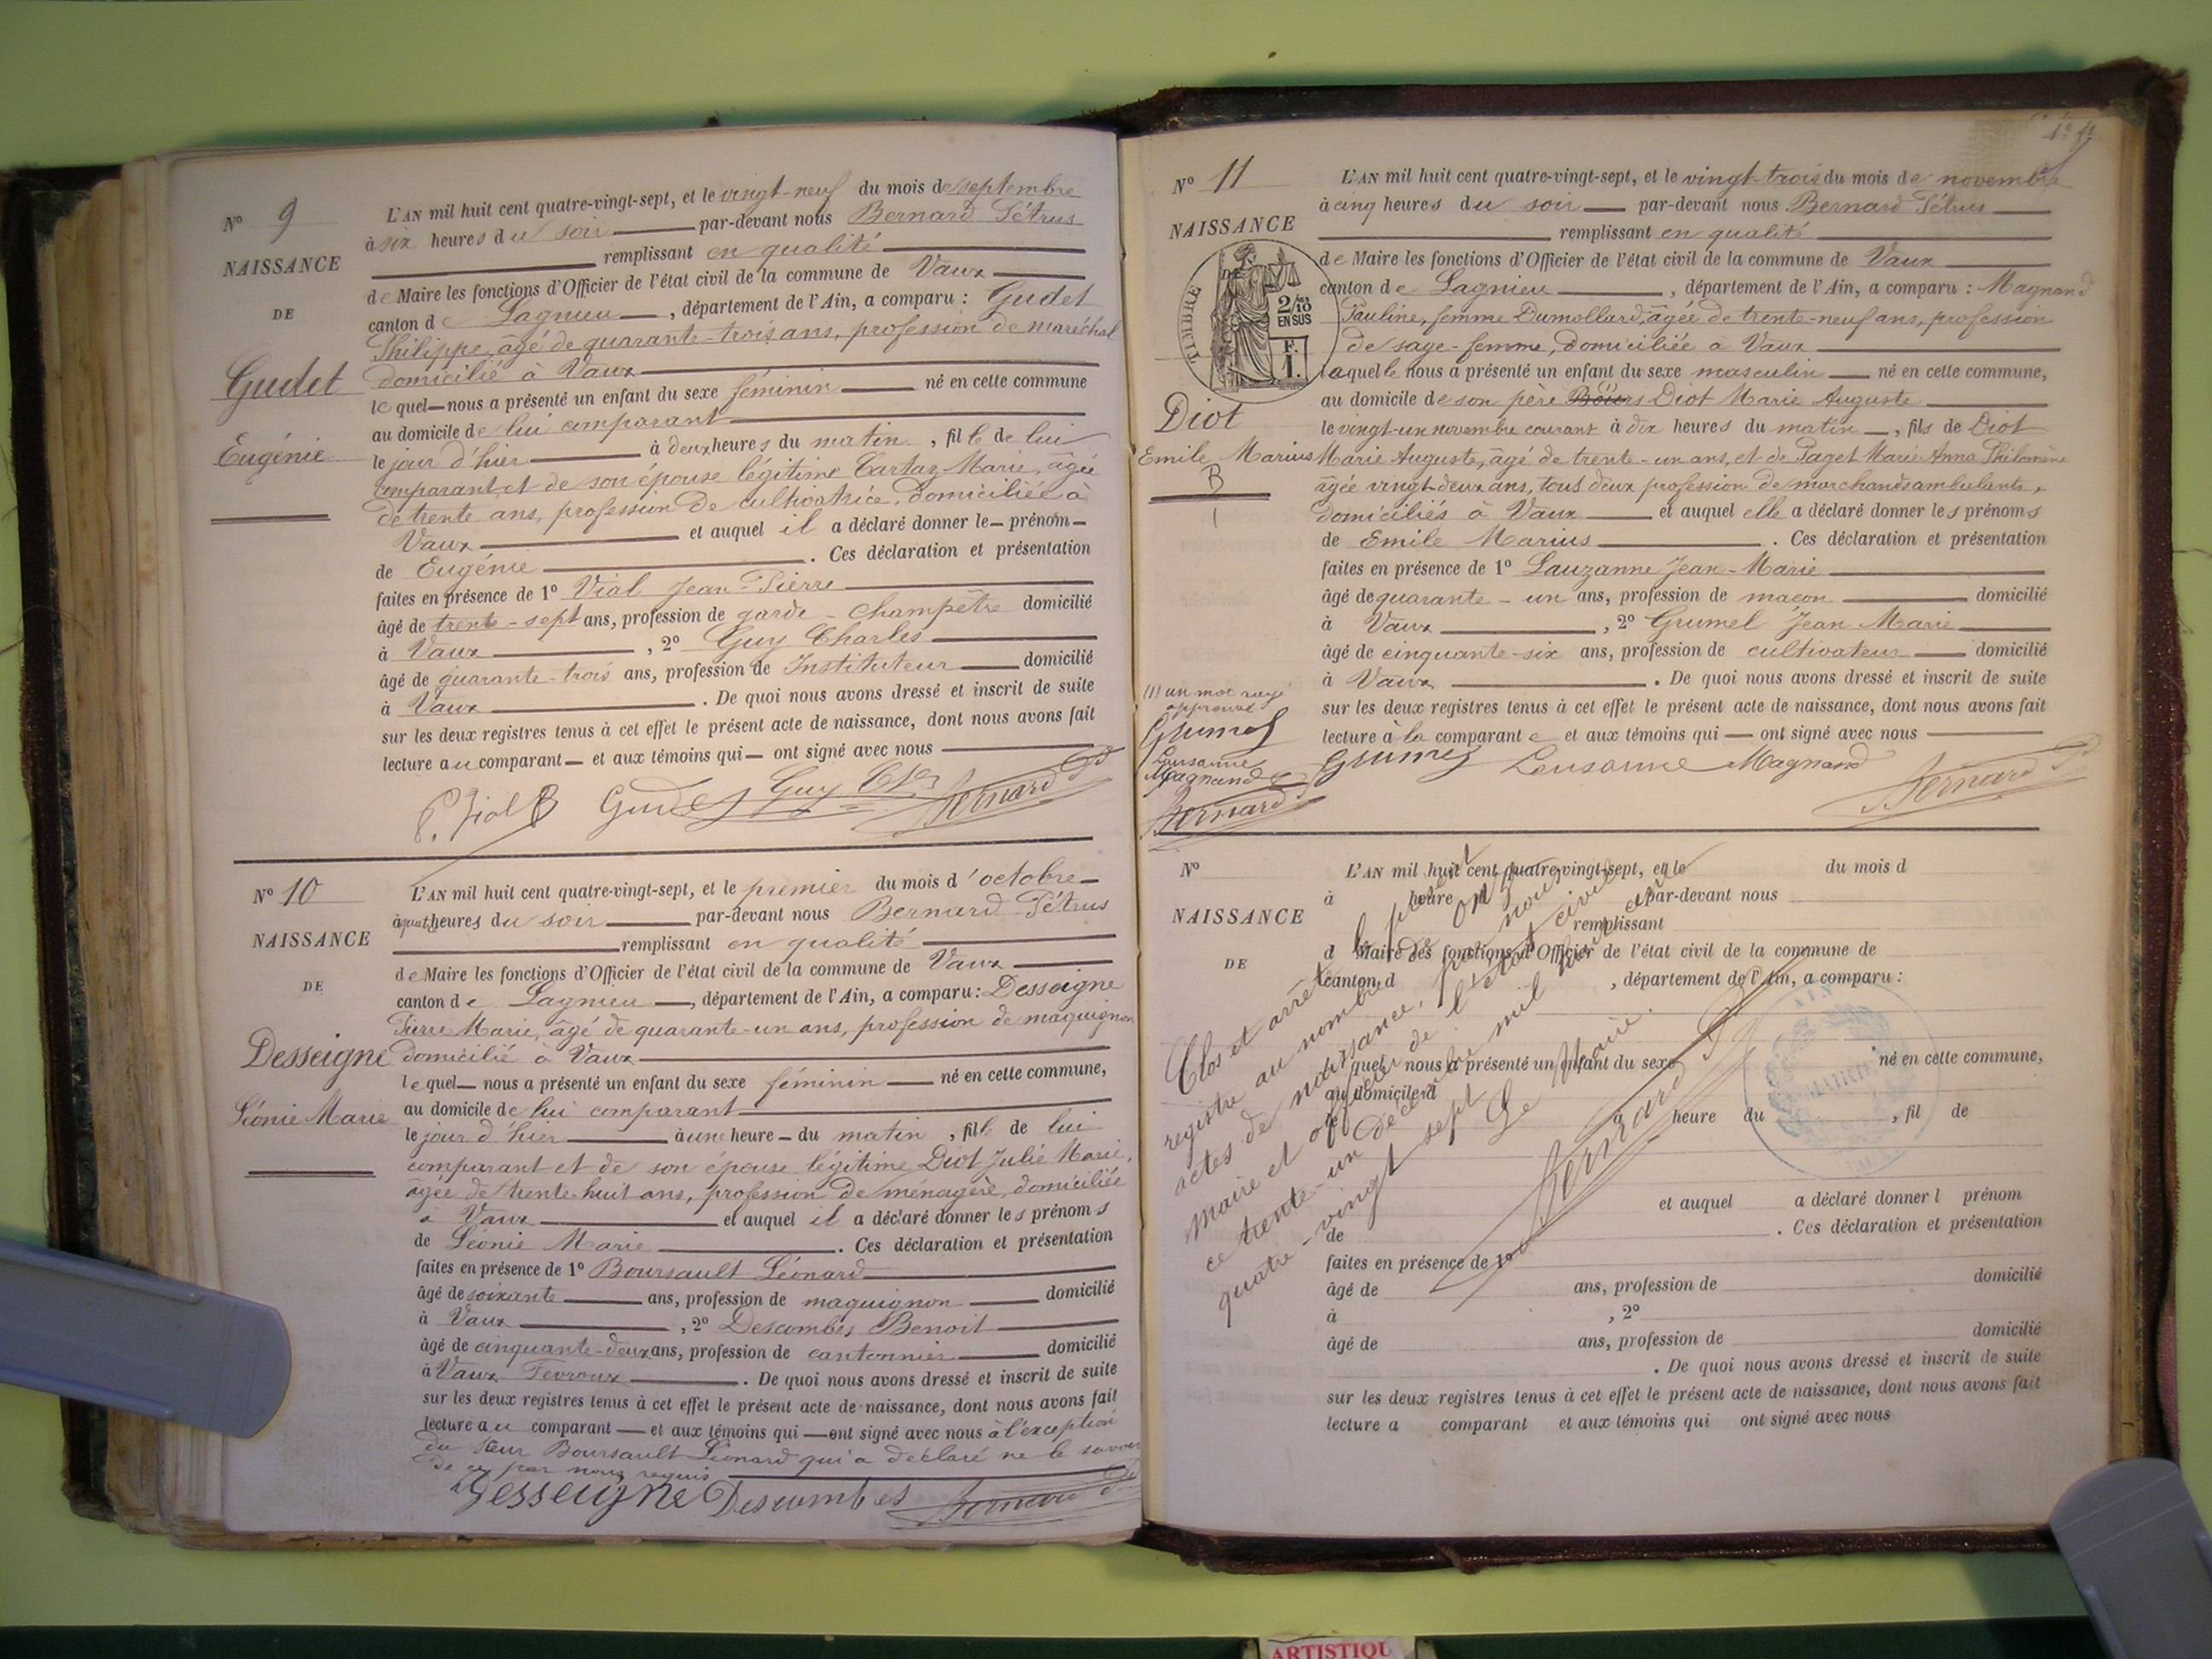 N° 9
NAISSANCE
DE
Gudet
Eugénie
L'AN mil huit cent quatre-vingt-sept, et le vingt-neuf du mois de septembre
à six heures du soir par-devant nous Bernard Pétrus
remplissant en qualité
de Maire les fonctions d'Officier de l'état civil de la commune de Vaux
canton de Lagnieu, département de l'Ain, a comparu : Gudet
Philippe, âgé de quarante-trois ans, profession de maréchal
domicilié à Vaux
lequel nous a présenté un enfant du sexe féminin né en cette commune
au domicile de lui comparant
le jour d'hier à deux heures du matin, fille de lui
comparant et de son épouse légitime Cartaz Marie, âgée
de trente ans, profession de cultivatrice, domiciliée à
Vaux et auquel il a déclaré donner le prénom
de Eugénie. Ces déclaration et présentation
faites en présence de 1° Vial Jean-Pierre
âgé de trente-sept ans, profession de garde-champêtre domicilié
à Vaux, 2° Guy Charles
âgé de quarante-trois ans, profession de Instituteur domicilié
à Vaux. De quoi nous avons dressé et inscrit de suite
sur les deux registres tenus à cet effet le présent acte de naissance, dont nous avons fait
lecture au comparant et aux témoins qui ont signé avec nous
P. Vial Gudet Guy Ch Bernard P
N° 10
NAISSANCE
DE
Desseigne
Léonie Marie
L'AN mil huit cent quatre-vingt-sept, et le premier du mois d'octobre
à quatre heures du soir par-devant nous Bernard Pétrus
remplissant en qualité
de Maire les fonctions d'Officier de l'état civil de la commune de Vaux
canton de Lagnieu, département de l'Ain, a comparu : Desseigne
Pierre Marie, âgé de quarante-un ans, profession de maquignon
domicilié à Vaux
lequel nous a présenté un enfant du sexe féminin né en cette commune,
au domicile de lui comparant
le jour d'hier à une heure du matin, fille de lui
comparant et de son épouse légitime Diot Julie Marie,
âgée de trente-huit ans, profession de ménagère, domiciliée
à Vaux et auquel il a déclaré donner les prénoms
de Léonie Marie. Ces déclaration et présentation
faites en présence de 1° Boursault Léonard
âgé de soixante ans, profession de maquignon domicilié
à Vaux, 2° Descombes Benoit
âgé de cinquante-deux ans, profession de cantonnier domicilié
à Vaux Fevroux. De quoi nous avons dressé et inscrit de suite
sur les deux registres tenus à cet effet le présent acte de naissance, dont nous avons fait
lecture au comparant et aux témoins qui ont signé avec nous à l'exception
du sieur Boursault Léonard qui a déclaré ne le savoir
de ce par nous requis
Desseigne Descombes Bernard P
N° 11
NAISSANCE
DE
TIMBRE
2/10
EN SUS
F.
1.
Diot
Emile Marius
B
L'AN mil huit cent quatre-vingt-sept, et le vingt-trois du mois de novembre
à cinq heures du soir par-devant nous Bernard Pétrus
remplissant en qualité
de Maire les fonctions d'Officier de l'état civil de la commune de Vaux
canton de Lagnieu, département de l'Ain, a comparu : Magnand
Pauline, femme Dumollard, âgée de trente-neuf ans, profession
de sage-femme, domiciliée à Vaux
laquelle nous a présenté un enfant du sexe masculin né en cette commune,
au domicile de son père Diot Marie Auguste
le vingt-un novembre courant à dix heures du matin, fils de Diot
Marie Auguste, âgé de trente-un ans, et de Paget Marie Anna Philomène
âgée vingt-deux ans, tous deux profession de marchands ambulants,
domiciliés à Vaux et auquel elle a déclaré donner les prénoms
de Emile Marius. Ces déclaration et présentation
faites en présence de 1° Lauzanne Jean-Marie
âgé de quarante-un ans, profession de maçon domicilié
à Vaux, 2° Grumel Jean Marie
âgé de cinquante-six ans, profession de cultivateur domicilié
à Vaux. De quoi nous avons dressé et inscrit de suite
sur les deux registres tenus à cet effet le présent acte de naissance, dont nous avons fait
lecture à la comparante et aux témoins qui ont signé avec nous
(1) un mot rayé
approuvé
Grumel
Lausanne
Magnand
Bernard
Grumel Lausanne Magnand Bernard P
N°
NAISSANCE
DE
L'AN mil huit cent quatre-vingt-sept, et le du mois d
à heure d par-devant nous
remplissant
d Maire les fonctions d'Officier de l'état civil de la commune de
canton d, département de l'Ain, a comparu :
quel nous a présenté un enfant du sexe né en cette commune,
au domicile d
le à heure du, fil de
et auquel a déclaré donner l prénom
de. Ces déclaration et présentation
faites en présence de 1°
âgé de ans, profession de domicilié
à, 2°
âgé de ans, profession de domicilié
. De quoi nous avons dressé et inscrit de suite
sur les deux registres tenus à cet effet le présent acte de naissance, dont nous avons fait
lecture a comparant et aux témoins qui ont signé avec nous
Clos et arrêté le présent
registre au nombre de onze
actes de naissance, par nous
maire et officier de l'état civil
ce trente-un décembre mil huit cent
quatre-vingt sept Le Maire.
Bernard P
AIN
MAIRIE
ARTISTIQU